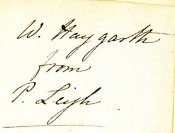 W. Haygarth
from
P. Leigh.